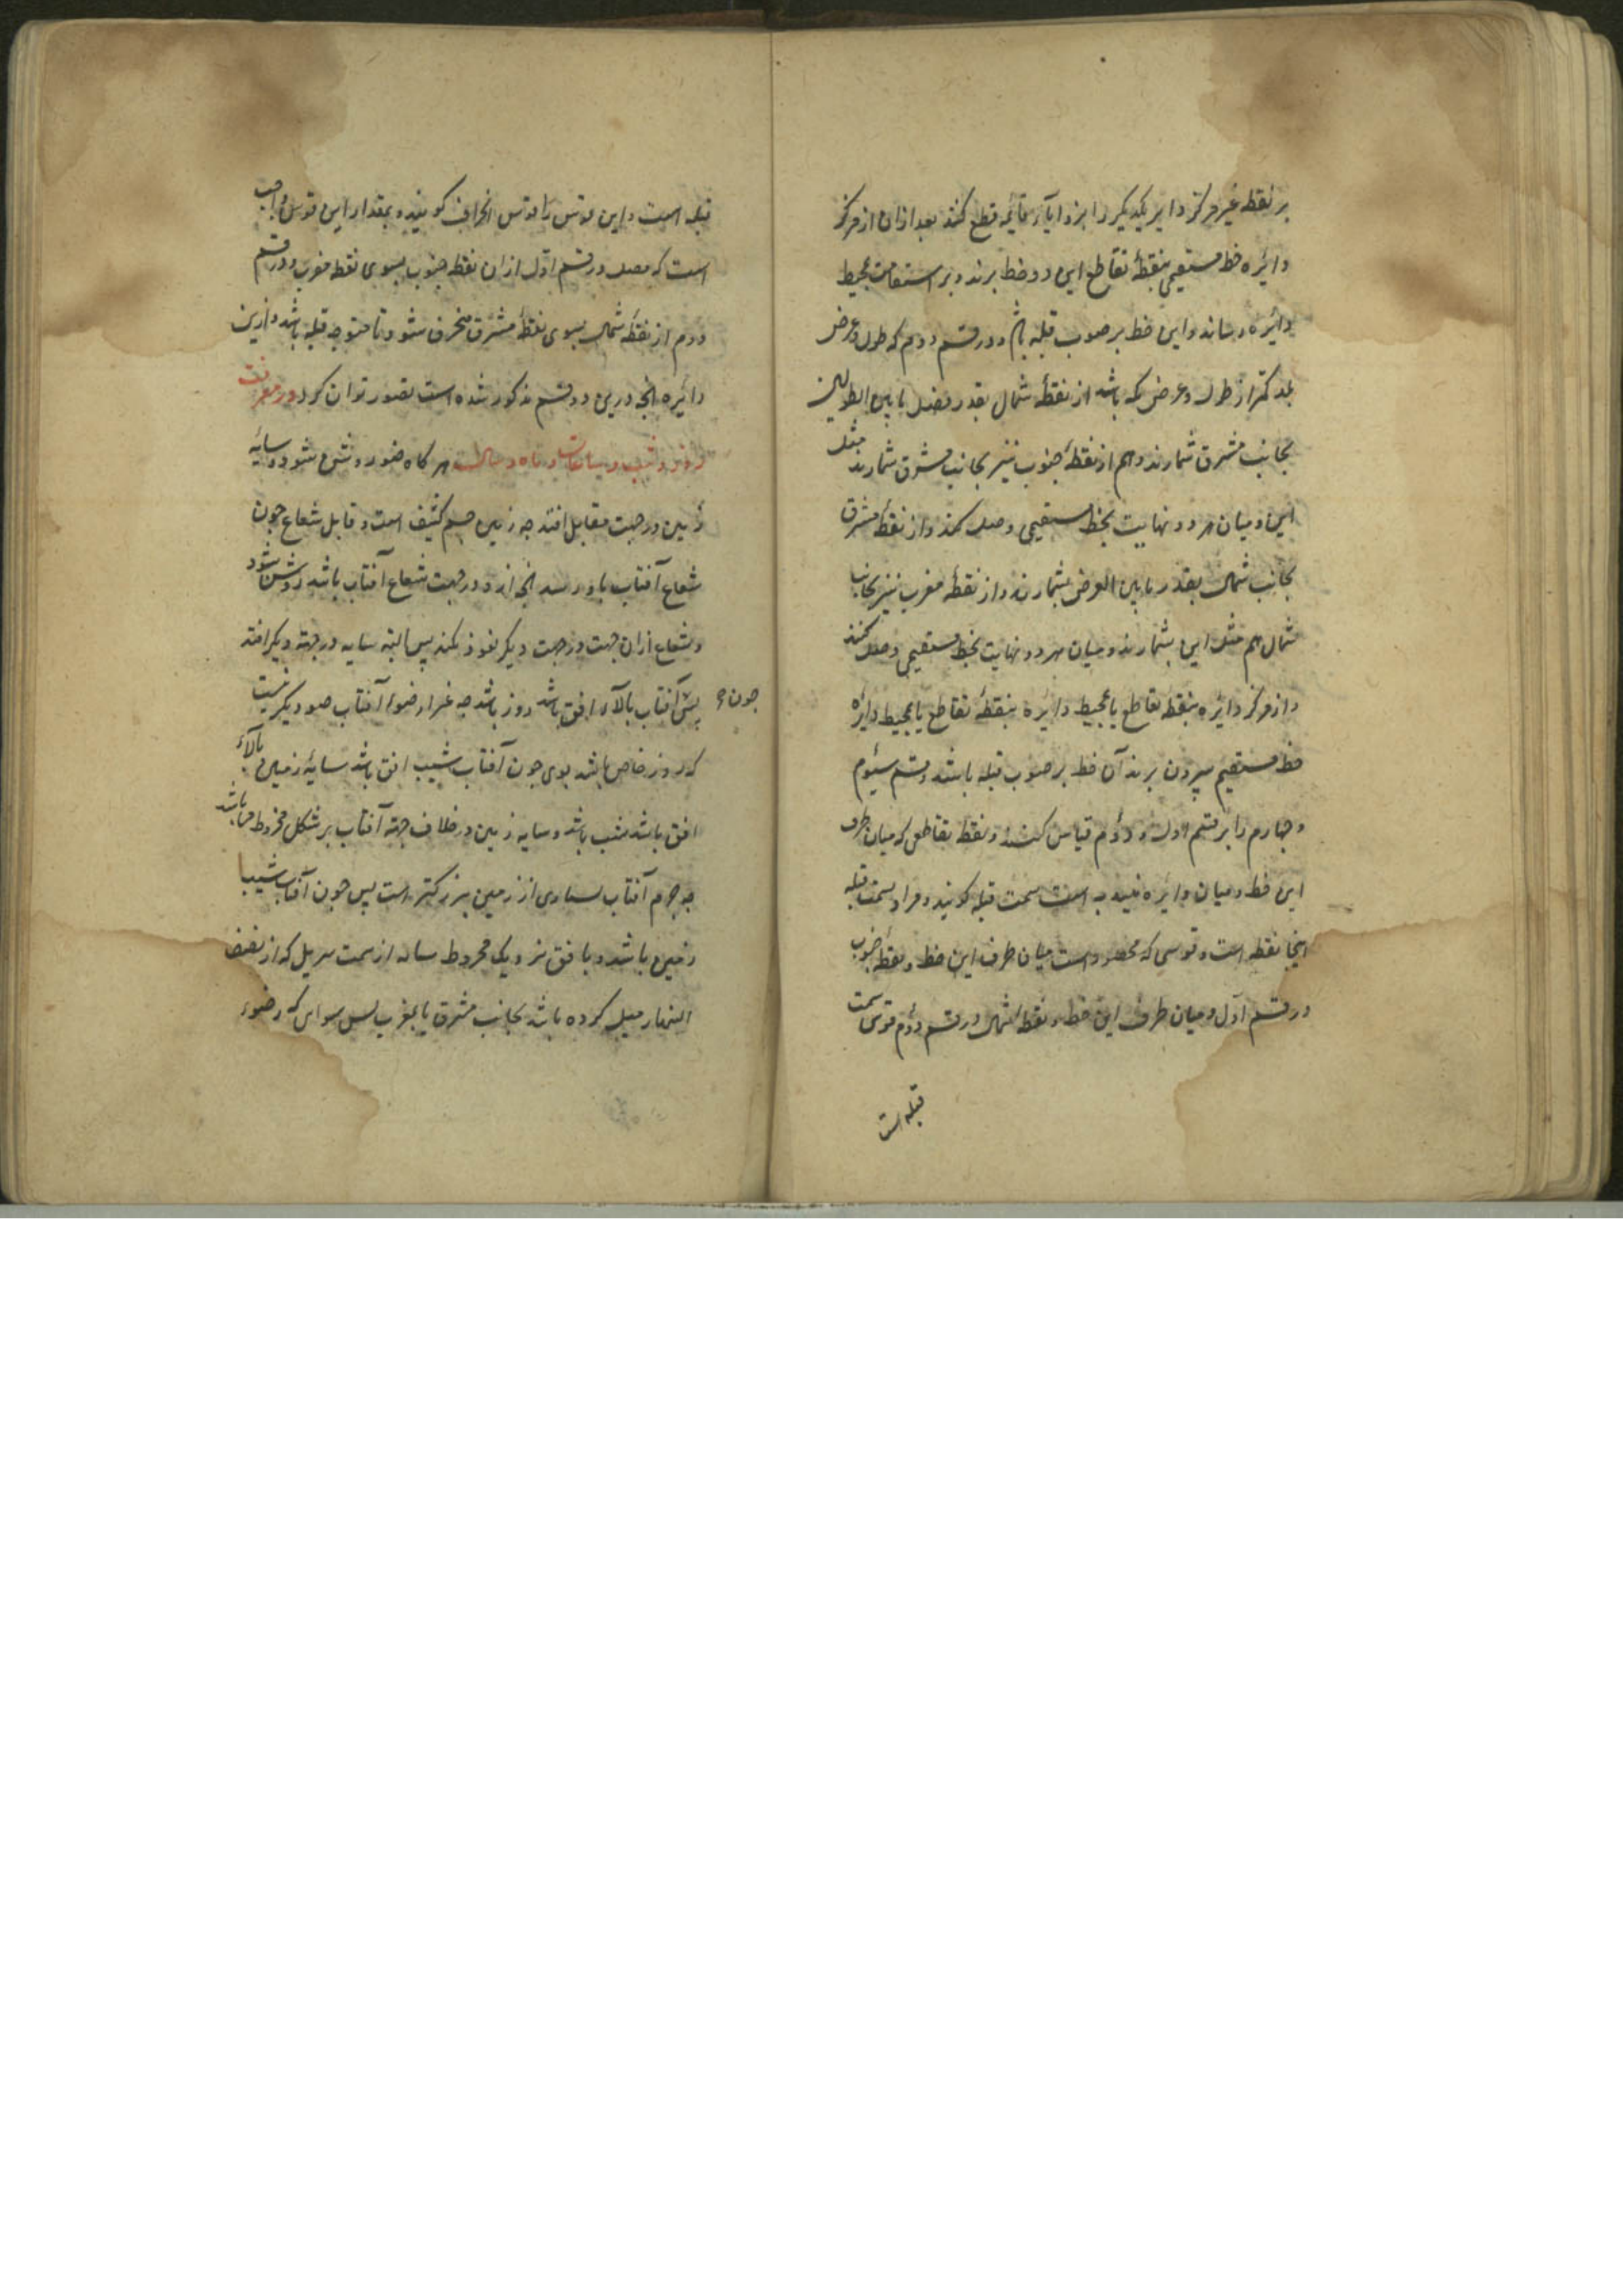 بر نقطه غیر مرکز دایره یکدیگر را بزوایای قایمه قطع کنند بعد ازان از مرکز
دائره خط مستقیمی بنقطهٔ تقاطع این دو خط برند و بر استقامت بمحیط
دائره رسانند و این خط بر صوب قبله باشد و در قسم دوم که طول و عرض
بلد کمتر از طول و عرض مکه باشد از نقطهٔ شمال بقدر فضل مابین الطولین
بجانب مشرق شمارند و هم از نقطهٔ جنوب نیز بجانب مشرق شمارند مثل
این و میان هر دو نهایت بخط مستقیمی وصل کنند و از نقطهٔ مشرق
بجانب شمال بقدر مابین العرض بشمارند و از نقطهٔ مغرب نیز بجانب
شمال هم مثل این بشمارند و میان هر دو نهایت بخط مستقیمی وصل کنند
و از مرکز دائره بنقطه تقاطع یا بمحیط دایره بنقطهٔ تقاطع یا بمحیط دایره
خط مستقیم بیرون برند آن خط بر صوب قبله باشد و قسم سیوم
و چهارم را بر قسم اول و دوم قیاس کنند و نقطه تقاطعی که میان طرف
این خط و میان دائره هندیه است سمت قبله گویند و مراد بسمت قبله
اینجا نقطه است و قوسی که محصور است میان طرف این خط و نقطهٔ جنوب
در قسم اول و میان طرف این خط و نقطه شمال در قسم دوم قوس سمت
قبله است
قبله است و این قوس را قوس انحراف گویند و بمقدار این قوس واجب
است که مصلی در قسم اول از آن نقطه جنوب بسوی نقطه مغرب و در قسم
دوم از نقطه شمال بسوی نقطهٔ مشرق منحرف شود تا متوجه قبله باشد و ازین
دائره آنچه درین دو قسم مذکور شده است تصور توان کرد در معرفت
روز و شب و ساعات و ماه و سال هر گاه ضور روشنی شود و سایهٔ
زمین در جهت مقابل افتد چه زمین جسم کثیف است و قابل شعاع چون
شعاع آفتاب باو رسد آنچه ازو در جهت شعاع آفتاب باشد روشن شود
و شعاع ازان جهت در جهت دیگر نفوذ نکند پس البته سایه در جهته دیگر افتد
چون
پس آفتاب بالای افق باشد روز باشد چه غیر از ضوء آفتاب ضو دیگر نیست
که روز خاص باشد بوی چون آفتاب شیب افق باشد سایهٔ زمین بالای
افق باشد شب باشد و سایه زمین در خلاف جهته آفتاب بر شکل مخروط میباشد
چه جرم آفتاب بسیاری از زمین بزرکتر است پس چون آفتاب شیب
زمین باشد و بافق نزدیک مخروط سایه از سمت که از نصف
النهار میل کرده باشد بجانب مشرق یا بمغرب پس که ضوء